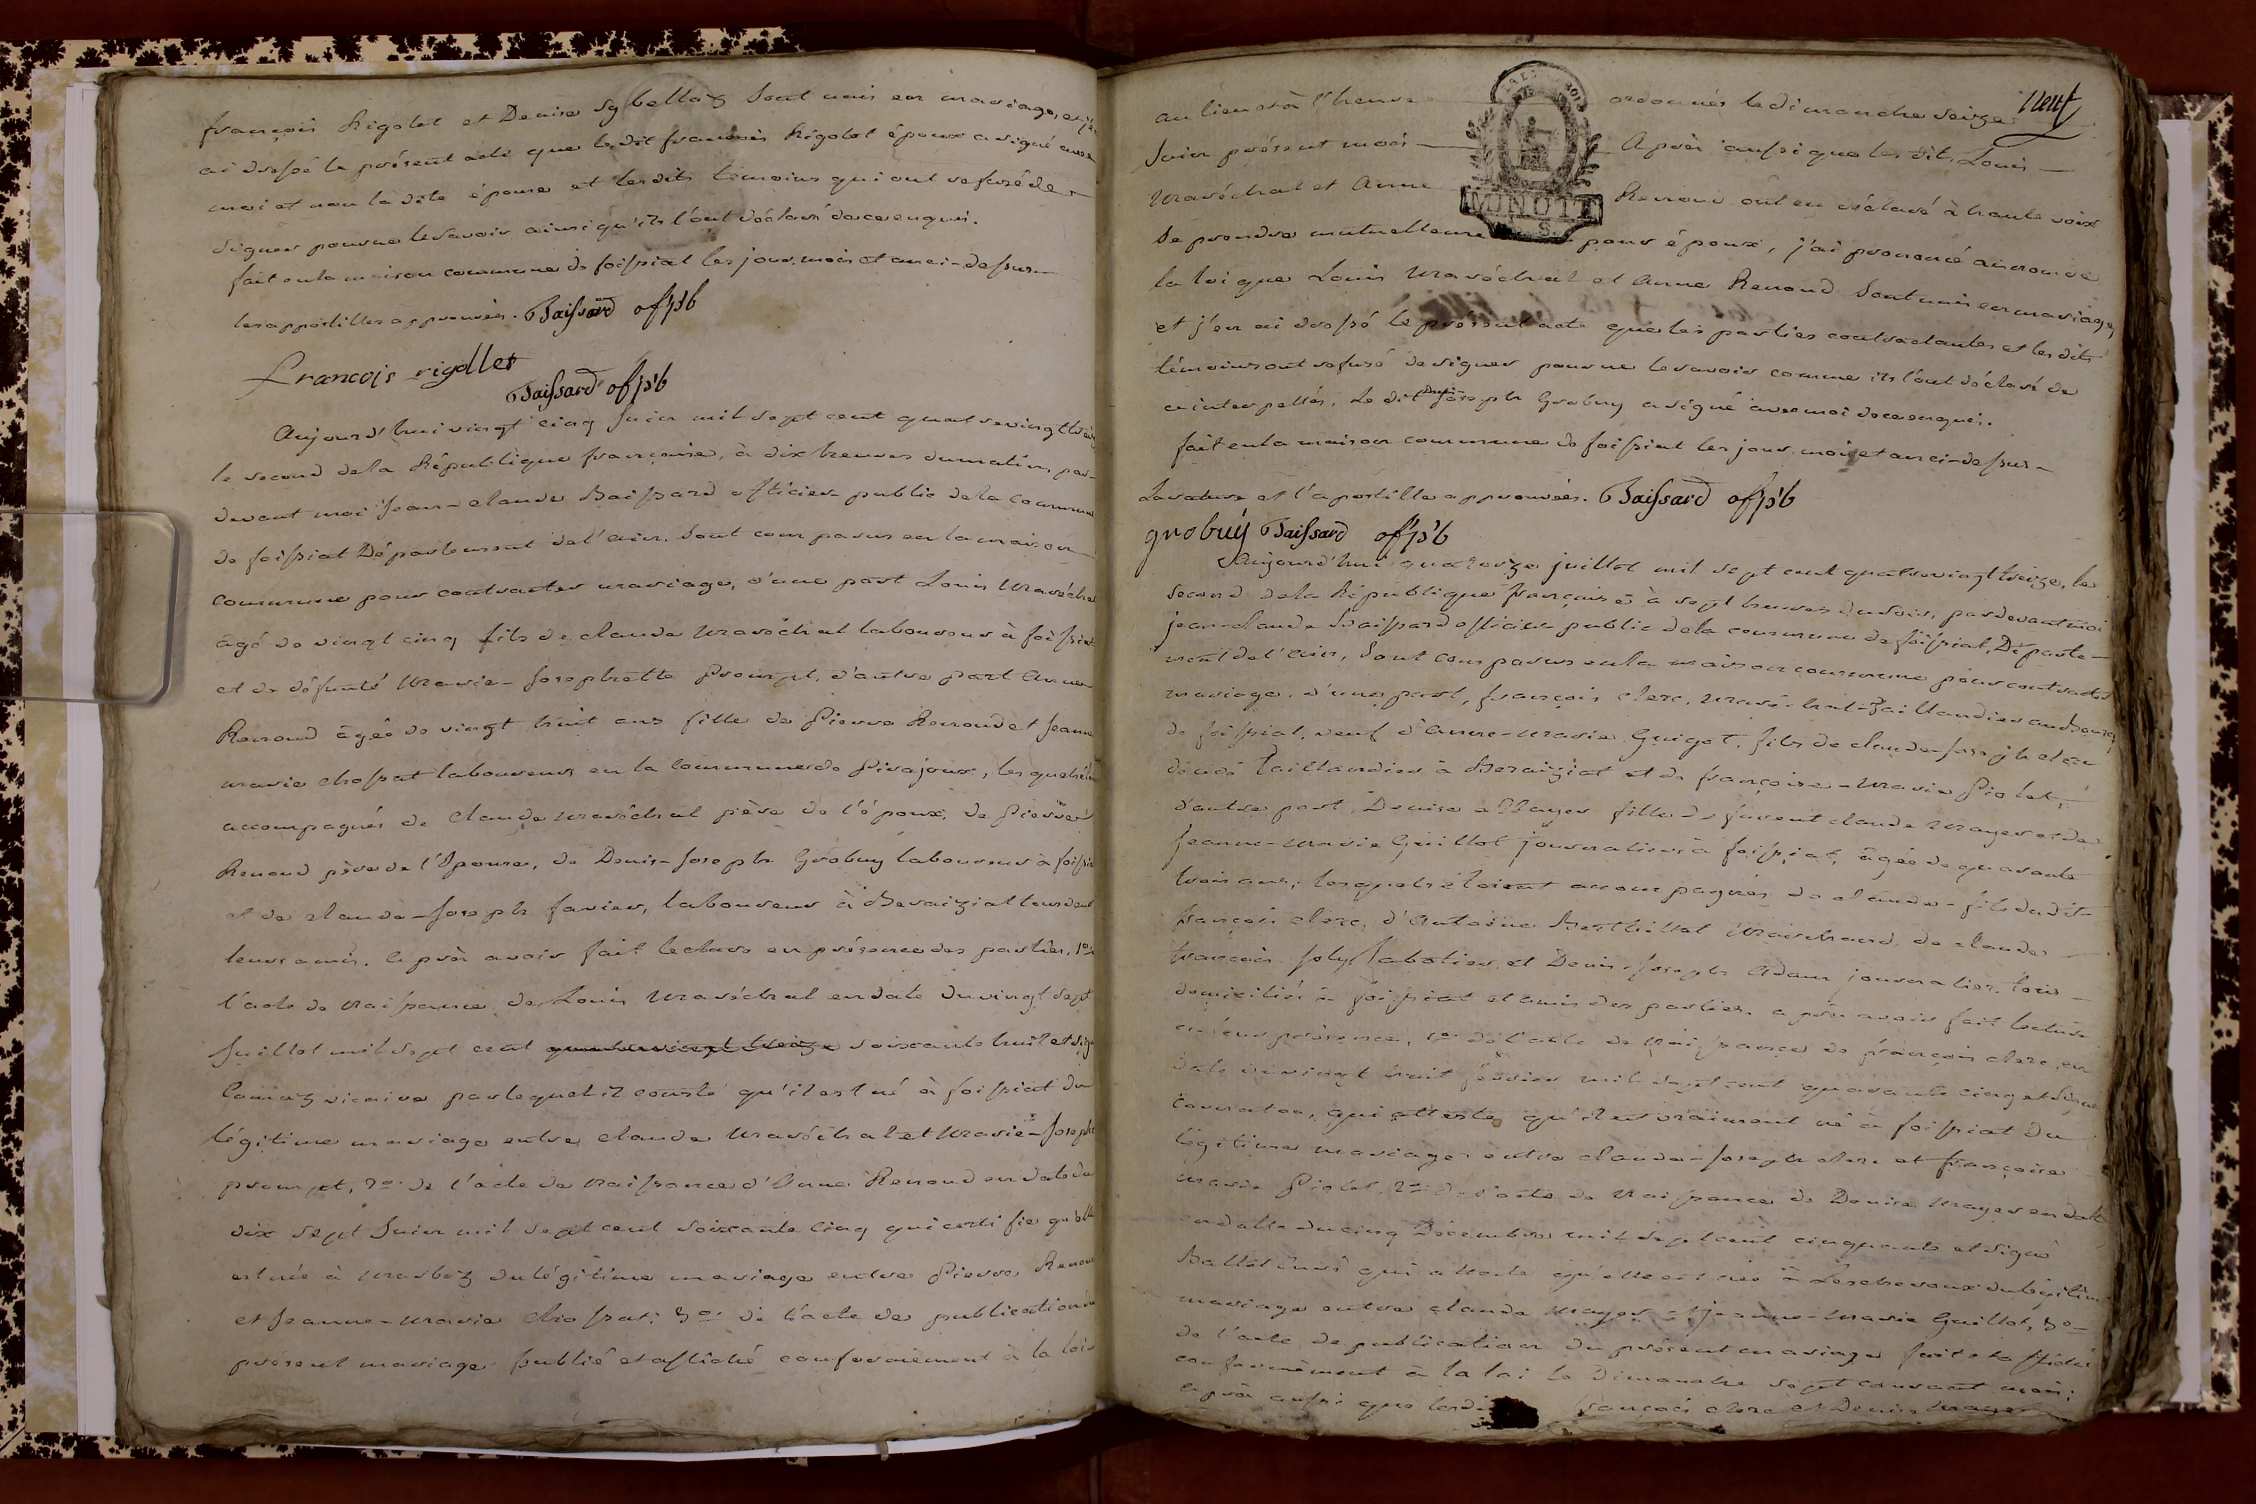 françois Rigolet et Denise Sybellaz Sont unis en mariage, et j'en
ai dressé le présent acte que le dit françois Rigolet époux a signé avec
moi et non la dite épouse et les dits témoins qui ont refusé de
signer pour ne le savoir ainsi qu'ils l'ont déclaré de ce enquis.
fait en la maison commune de foissiat les jour, mois et an ci-dessus
les appostilles approuvées. Baissard off pb
francois rigollet
Baissard off pb
Aujourd'hui vingt cinq Juin mil sept cent quatrevingt treize
le second de la République françoise, à dix heures du matin, par-
devant moi Jean-claude Baissard officier public de la commune
de foissiat Département de l'ain. Sont comparus en la maison
commune pour contracter mariage, d'une part Louis Maréchal
âgé de vingt cinq fils de claude Maréchal laboureur à foissiat
et de défunte Marie-Josephette Prompt, d'autre part Anne
Renoud âgée de vingt huit ans fille de Pierre Renoud et Jeanne
marie chossat laboureurs en la commune de Pirajoux, lesquels
accompagnés de claude Maréchal père de l'époux, de Pierre
Renoud père de l'Epouse, de Denis-Joseph Grobuy laboureur à foissiat
et de claude-Joseph favier, laboureur à Beraiziat tous deux
leurs amis. après avoir fait lecture en présence des parties, 1o. de
l'acte de Naissance de Louis Maréchal en date du vingt sept
Juillet mil sept cent quatrevingt treize soixante huit et signé
vicaire par lequel il conste qu'il est né à foissiat du
légitime mariage entre claude Maréchal et Marie-Joseph
prompt, 2o. de l'acte de Naissance d'Anne Renoud en date du
dix sept Juin mil sept cent soixante cinq qui certifie qu'elle
est née à Marboz du légitime mariage entre Pierre Renoud
et Jeanne-Marie chossat; 3o. de l'acte de publication du
présent mariage publié et affiché conformément à la loi
Neuf
au lieu et à l'heure ordonnés le dimanche seize
Juin présent mois Après aussi que les dits Louis
Maréchal et Anne Renoud ont eu déclaré à haute voix
se prendre mutuellement pour époux, j'ai prononcé au nom de
MINUTE
la loi que Louis Maréchal et Anne Renoud Sont unis en mariage,
et j'en ai dressé le présent acte que les parties contractantes et les dits
témoins ont refusé de signer pour ne le savoir comme ils l'ont déclaré de
ce interpellés. Le dit Denis Joseph Grobuy a signé avec moi de ce enquis.
fait en la maison commune de foissiat les jour mois et an ci-dessus
La rature et l'apostille approuvées. Baissard off pb
grobuy Baissard off pb
Aujourd'hui quatorze juillet mil sept cent quatrevingt treize, le
second de la République françoise à sept heures du soir, par devant moi
jean-claude Baissard officier public de la commune de foissiat, Départe-
ment de l'ain, Sont comparus en la maison commune pour contracter
mariage. d'une part, françois clerc, maréchal-Taillandier au Bourg
de foissiat, veuf d'Anne-Marie Guigot, fils de claude-Joseph clerc
décédé Taillandier à Beraiziat et de françoise-Marie Piolet,
d'autre part Denise Mayer fille de feurent claude Mayer et de
Jeanne-Marie Guillot journaliers à foissiat, âgée de quarante
trois ans; lesquels étoient accompagnés de claude fils dudit
françois clerc, d'Antoine Berthillot Marchand, de claude
françois Joly Sabotier, et Denis-Joseph Adam journalier, tous
domiciliés à foissiat et amis des parties. après avoir fait lecture
en leur présence, 1o. de l'acte de Naissance de françois clerc, en
date du vingt huit février mil sept cent quarante cinq et signé
qui atteste qu'il est vraiment né à foissiat du
légitime mariage entre claude-Joseph clerc et françoise
Marie Piolet, 2o. de l'acte de Naissance de Denise Mayer en date
en date du cinq Décembre mil sept cent cinquante et signé
qui atteste qu'elle est née à Lescheroux du légitime
mariage entre claude Mayer et Jeanne-Marie Guillot, 3o.
de l'acte de publication du présent mariage fait et affiché
conformément à la loi le Dimanche sept courant mois;
après aussi que lesdits françois clerc et Denise Mayer